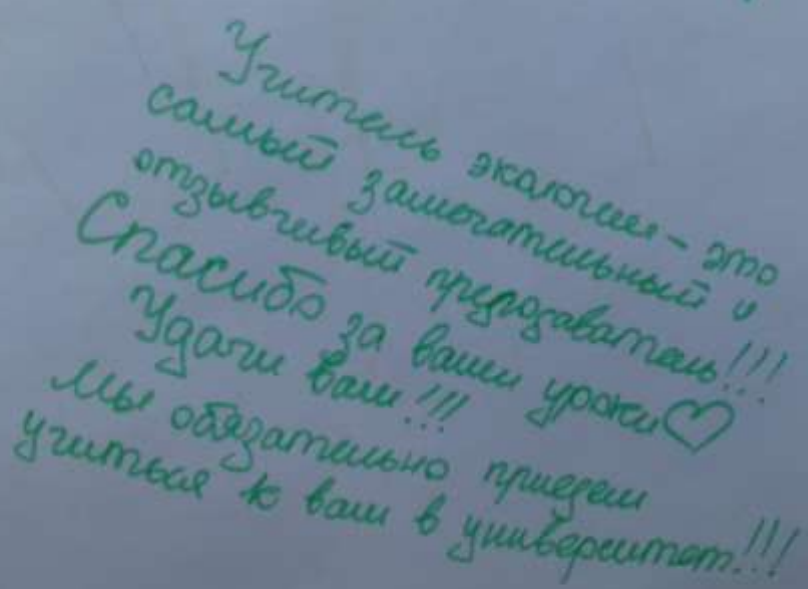 Учитель экологии - это
самый замечательный и
отзывчивый преподаватель!!!
Спасибо за ваши уроки♡
Удачи вам!!!
Мы обязательно приедем
учиться к вам в университет!!!